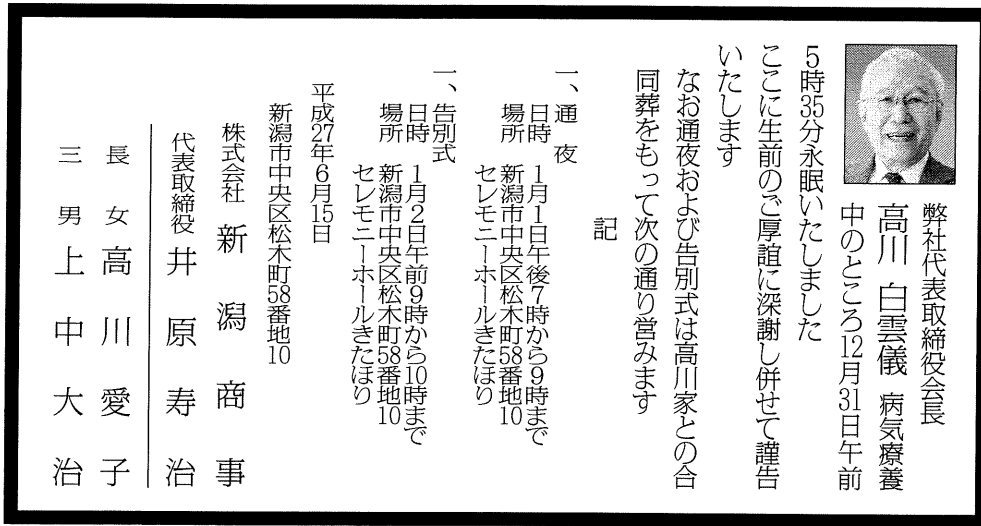 弊社代表取締役会長
高川 白雲儀 病気療養
中のところ12月31日午前
5時35分永眠いたしました
ここに生前のご厚誼に深謝し併せて謹告
いたします
なお通夜および告別式は高川家との合
同葬をもって次の通り営みます
記
一、通 夜
日時 1月1日午後7時から9時まで
場所 新潟市中央区松木町58番地10
セレモニーホールきたほり
一、告別式
日時 1月2日午前9時から10時まで
場所 新潟市中央区松木町58番地10
セレモニーホールきたほり
平成27年6月15日
新潟市中央区松木町58番地10
株式会社 新潟商事
代表取締役 井原寿治
長 女 高川愛子
三 男 上中大治